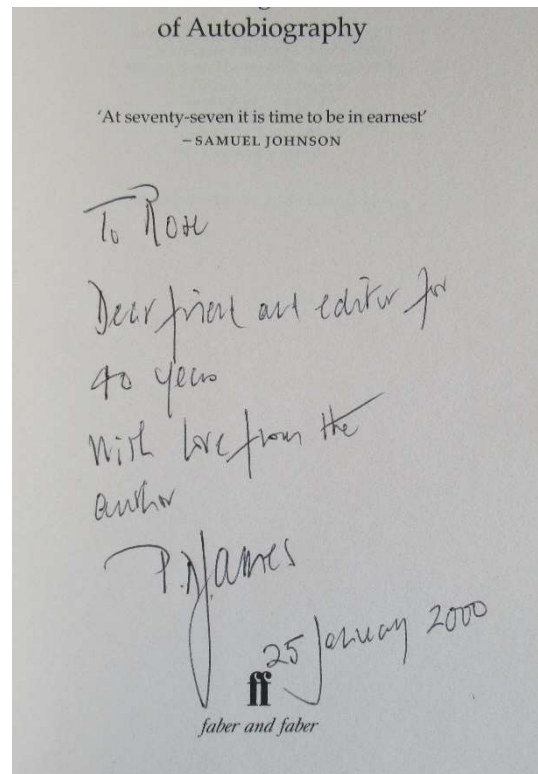 of Autobiography
‘At seventy-seven it is time to be in earnest’
– SAMUEL JOHNSON
To Rose
Dear friend and editor for
40 years
With love from the
author
P. D. James
25 January 2000
ff
faber and faber